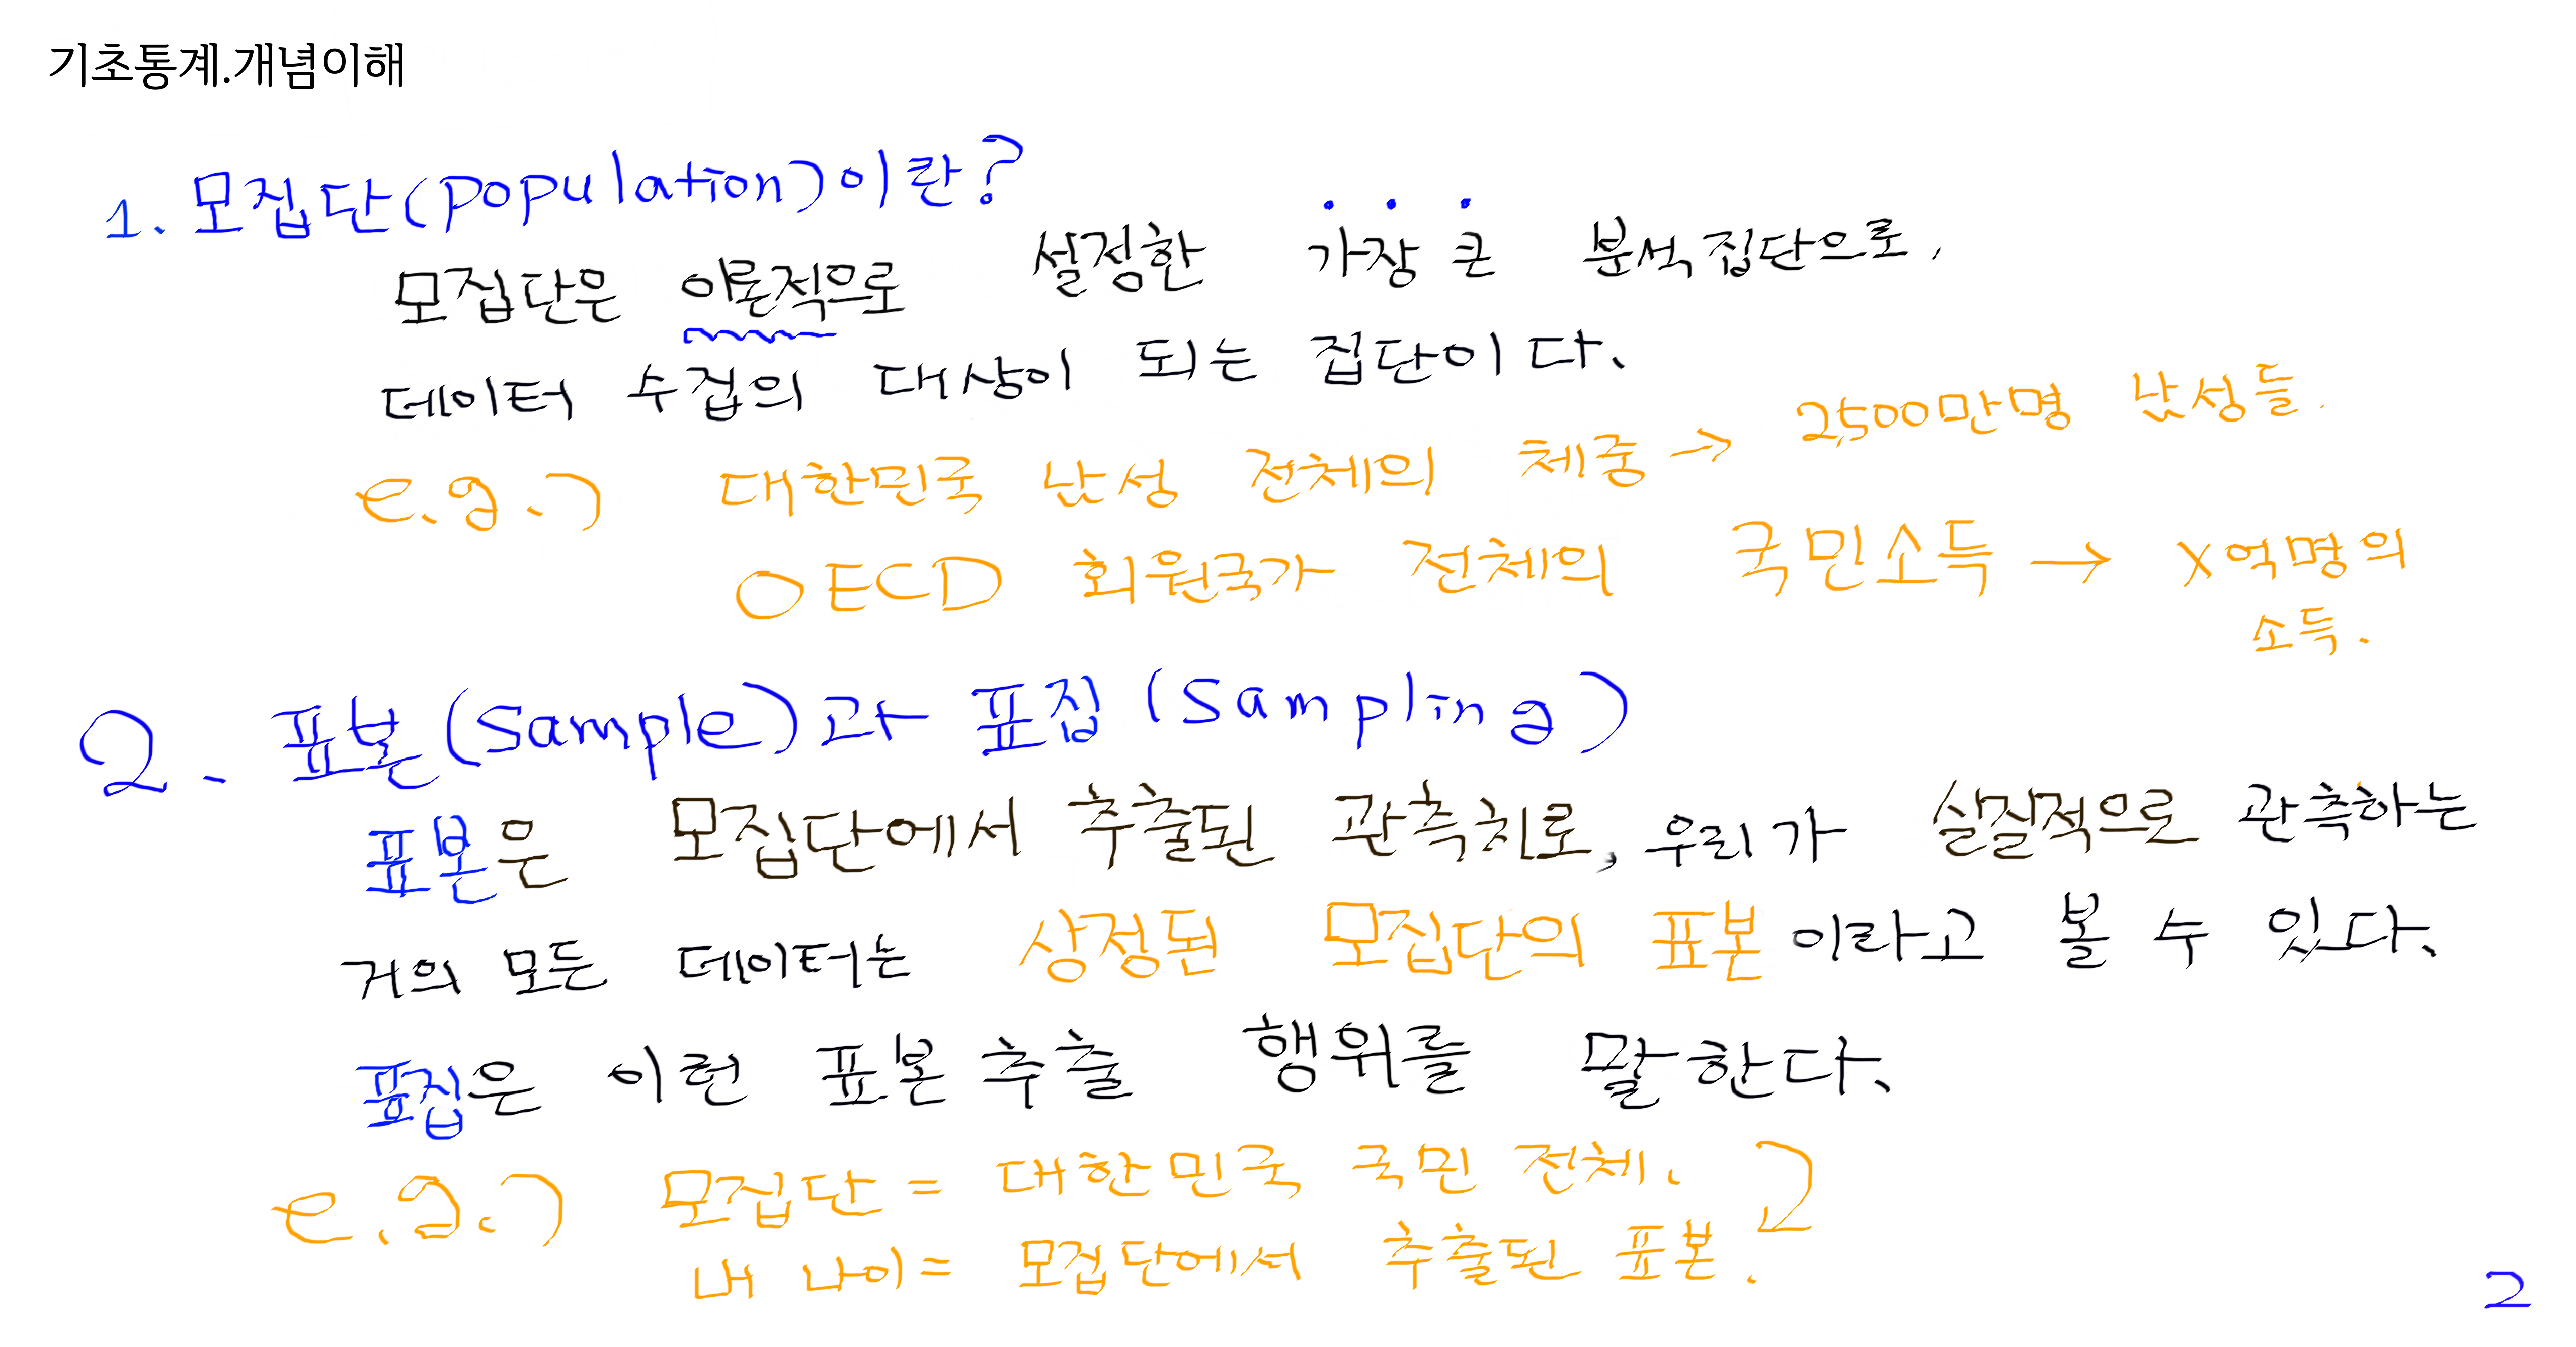 기초통계.개념이해
1. 모집단(population)이란?
모집단은 이론적으로 설정한 가장 큰 분석집단으로,
데이터 수집의 대상이 되는 집단이다.
e.g.) 대한민국 남성 전체의 체중 → 2,500만명 남성들.
OECD 회원국가 전체의 국민소득 → X억명의
소득.
2. 표본(sample)과 표집(sampling)
표본은 모집단에서 추출된 관측치로, 우리가 실질적으로 관측하는
거의 모든 데이터는 상정된 모집단의 표본이라고 볼 수 있다.
표집은 이런 표본 추출 행위를 말한다.
e.g.) 모집단 = 대한민국 국민 전체.
내 나이 = 모집단에서 추출된 표본.
2